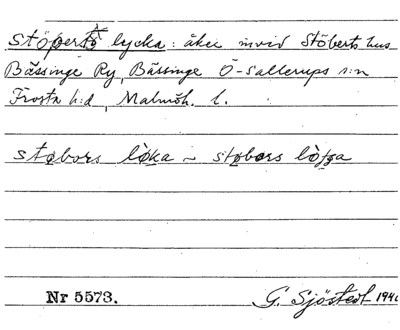 Stöperts lycka: åker invid Stöberts hus
Bässinge Ry, Bässinge Ö-Sallerups s:n
Frosta h:d, Malmöh. l.
støbors lòka ~ støbors lòga
Nr 5573. G. Sjöstedt 194